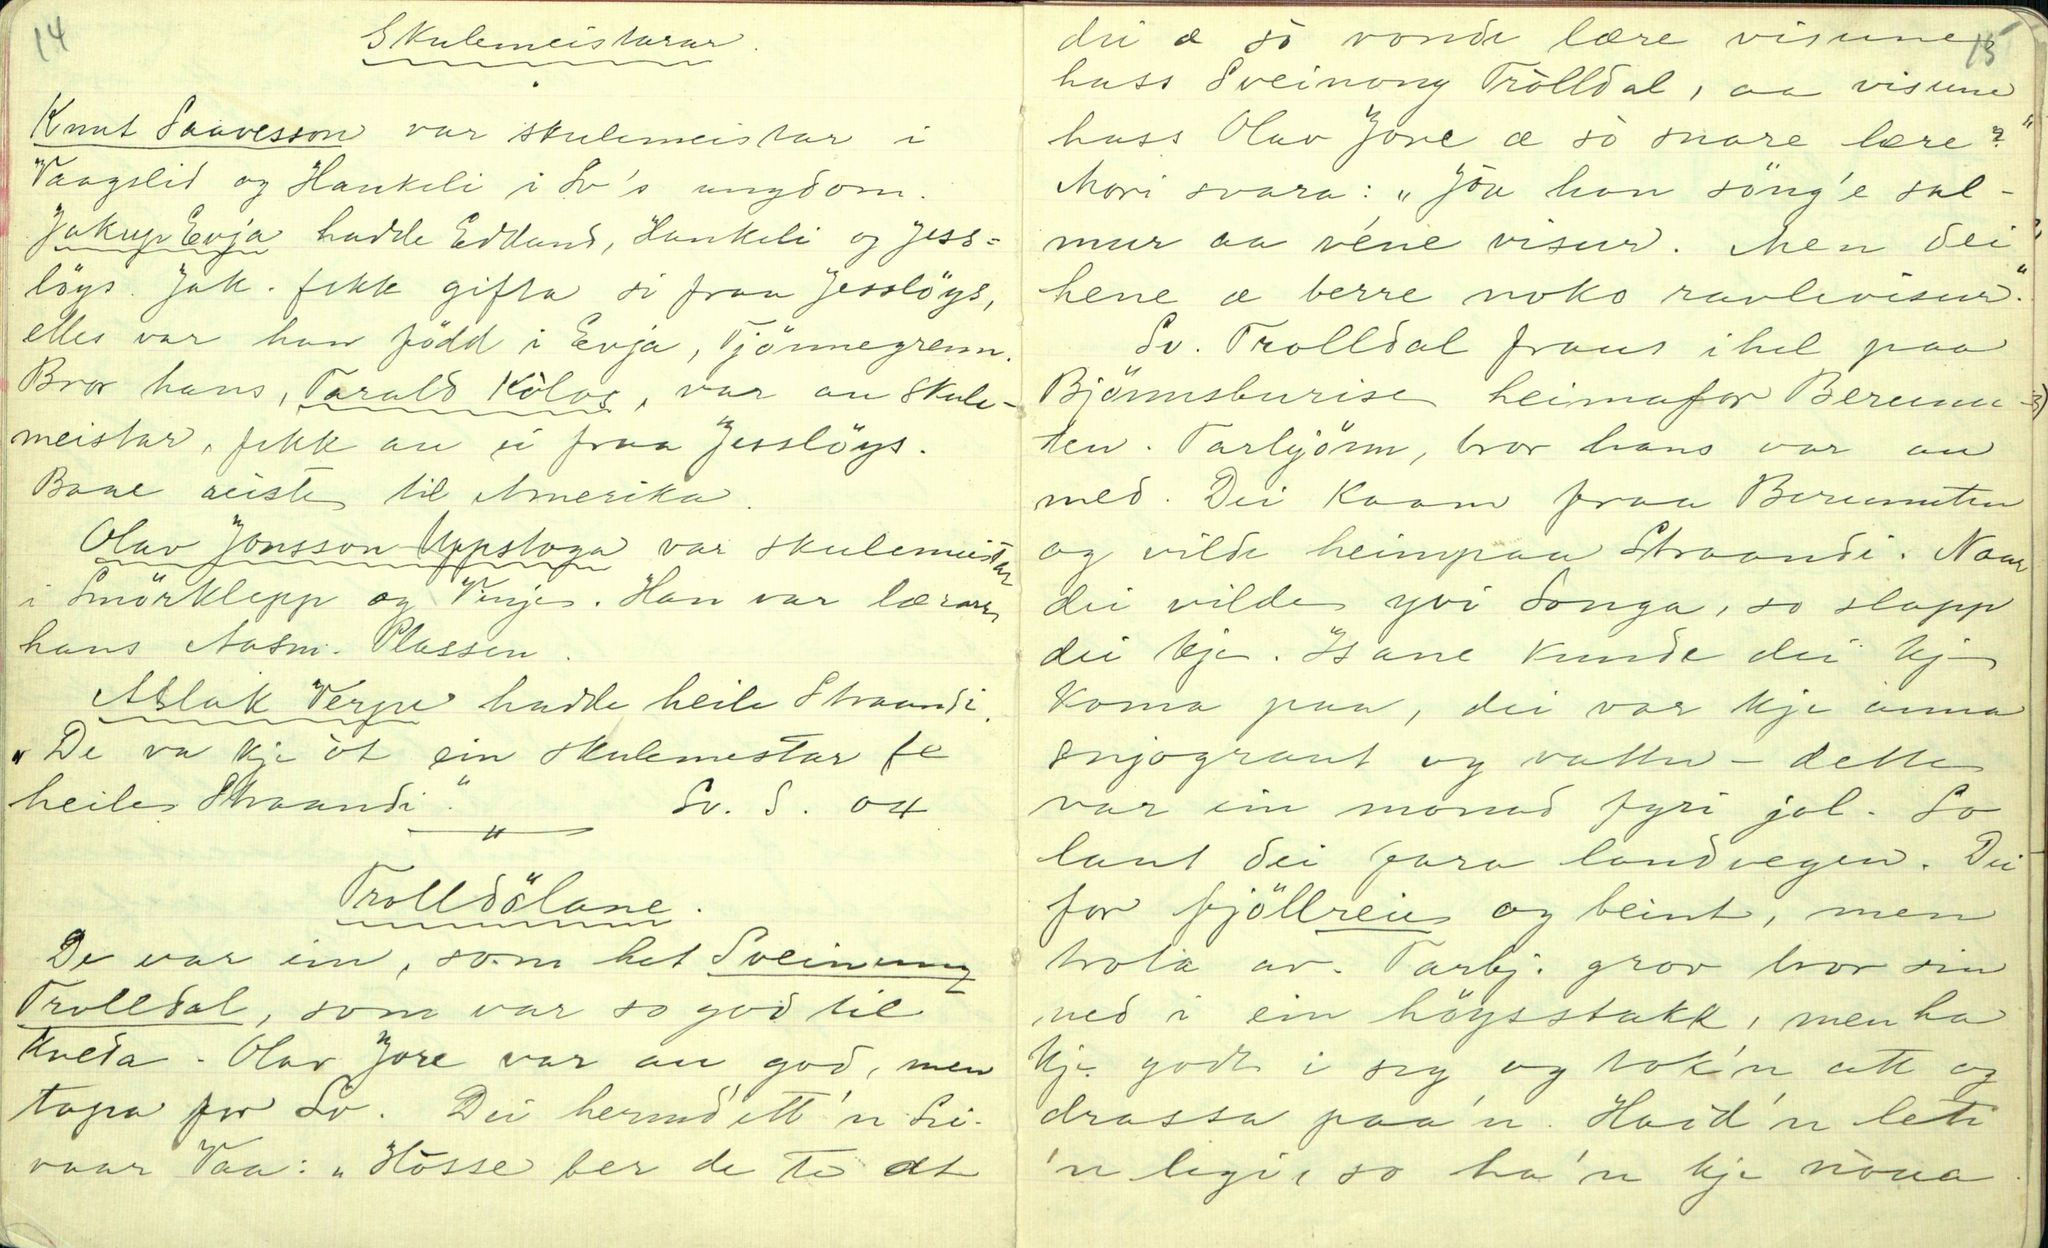 14
Skulemeistarar.
Knut Saavesson var skulemeistar i
Vaagslid og Haukeli i Sv's ungdom.
Jakup Evja hadde Edland, Haukeli og Jess=
löys. Jak. fekk gifta si fraa Jesslöys,
elles var han född i Evja, Tjönnegrenn.
Bror hans, Tarald Kilos, var au skule-
meistar, fekk au si fraa Jesslöys.
Baae reiste til Amerika.
Olav Jonsson Uppstoga var skulemeistar
i Smörklepp og Vinje. Han var lærarn
hans Aasm. Plassen.
Aslak Verpe hadde heile Straandi.
"De va kje òt ein skulemestar fe
heile Straandi." Sv. S. 04
"
Trolldölane.
De var ein, som het Sveinung
Trolldal, som var so god til
kveda. Olav Jore var au god, men
tapa for Sv. Dei hermd' ett'n Si-
vaar Vaa: „Hòsse ber de te at
15
dei æ sò vonde lære visune
hass Sveinong Tròlldal, aa visune
hass Olav Jore æ sò snare lære?"
Mori svara: „Jòa han söng'e sal-
mur aa véne visur. Men dei
hene æ berre noko ravlevisur."
Sv. Trolldal fraus ihel paa
Björnnsburise heimafor Berunu-
ten. Tarbjörnn, bror hans var au
med. Dei kaam fraa Berunuten
og vilde heimpaa Straandi. Naar
dei vilde yvi Songa, so slapp
dei kje. Isane kunde dei kje
koma paa, dei var kje anna
snjograut og vattn – dette
var ein monad fyri jol. So
laut dei fara landvegen. Dei
for fjöllreie og beint, men
trota av. Tarbj. grov bror sin
ned i ein höysstakk, men ha
kje godt i seg og tok'n att og
drassa paa'n. Had'n lete
'n legi, so ha'n kje nòua